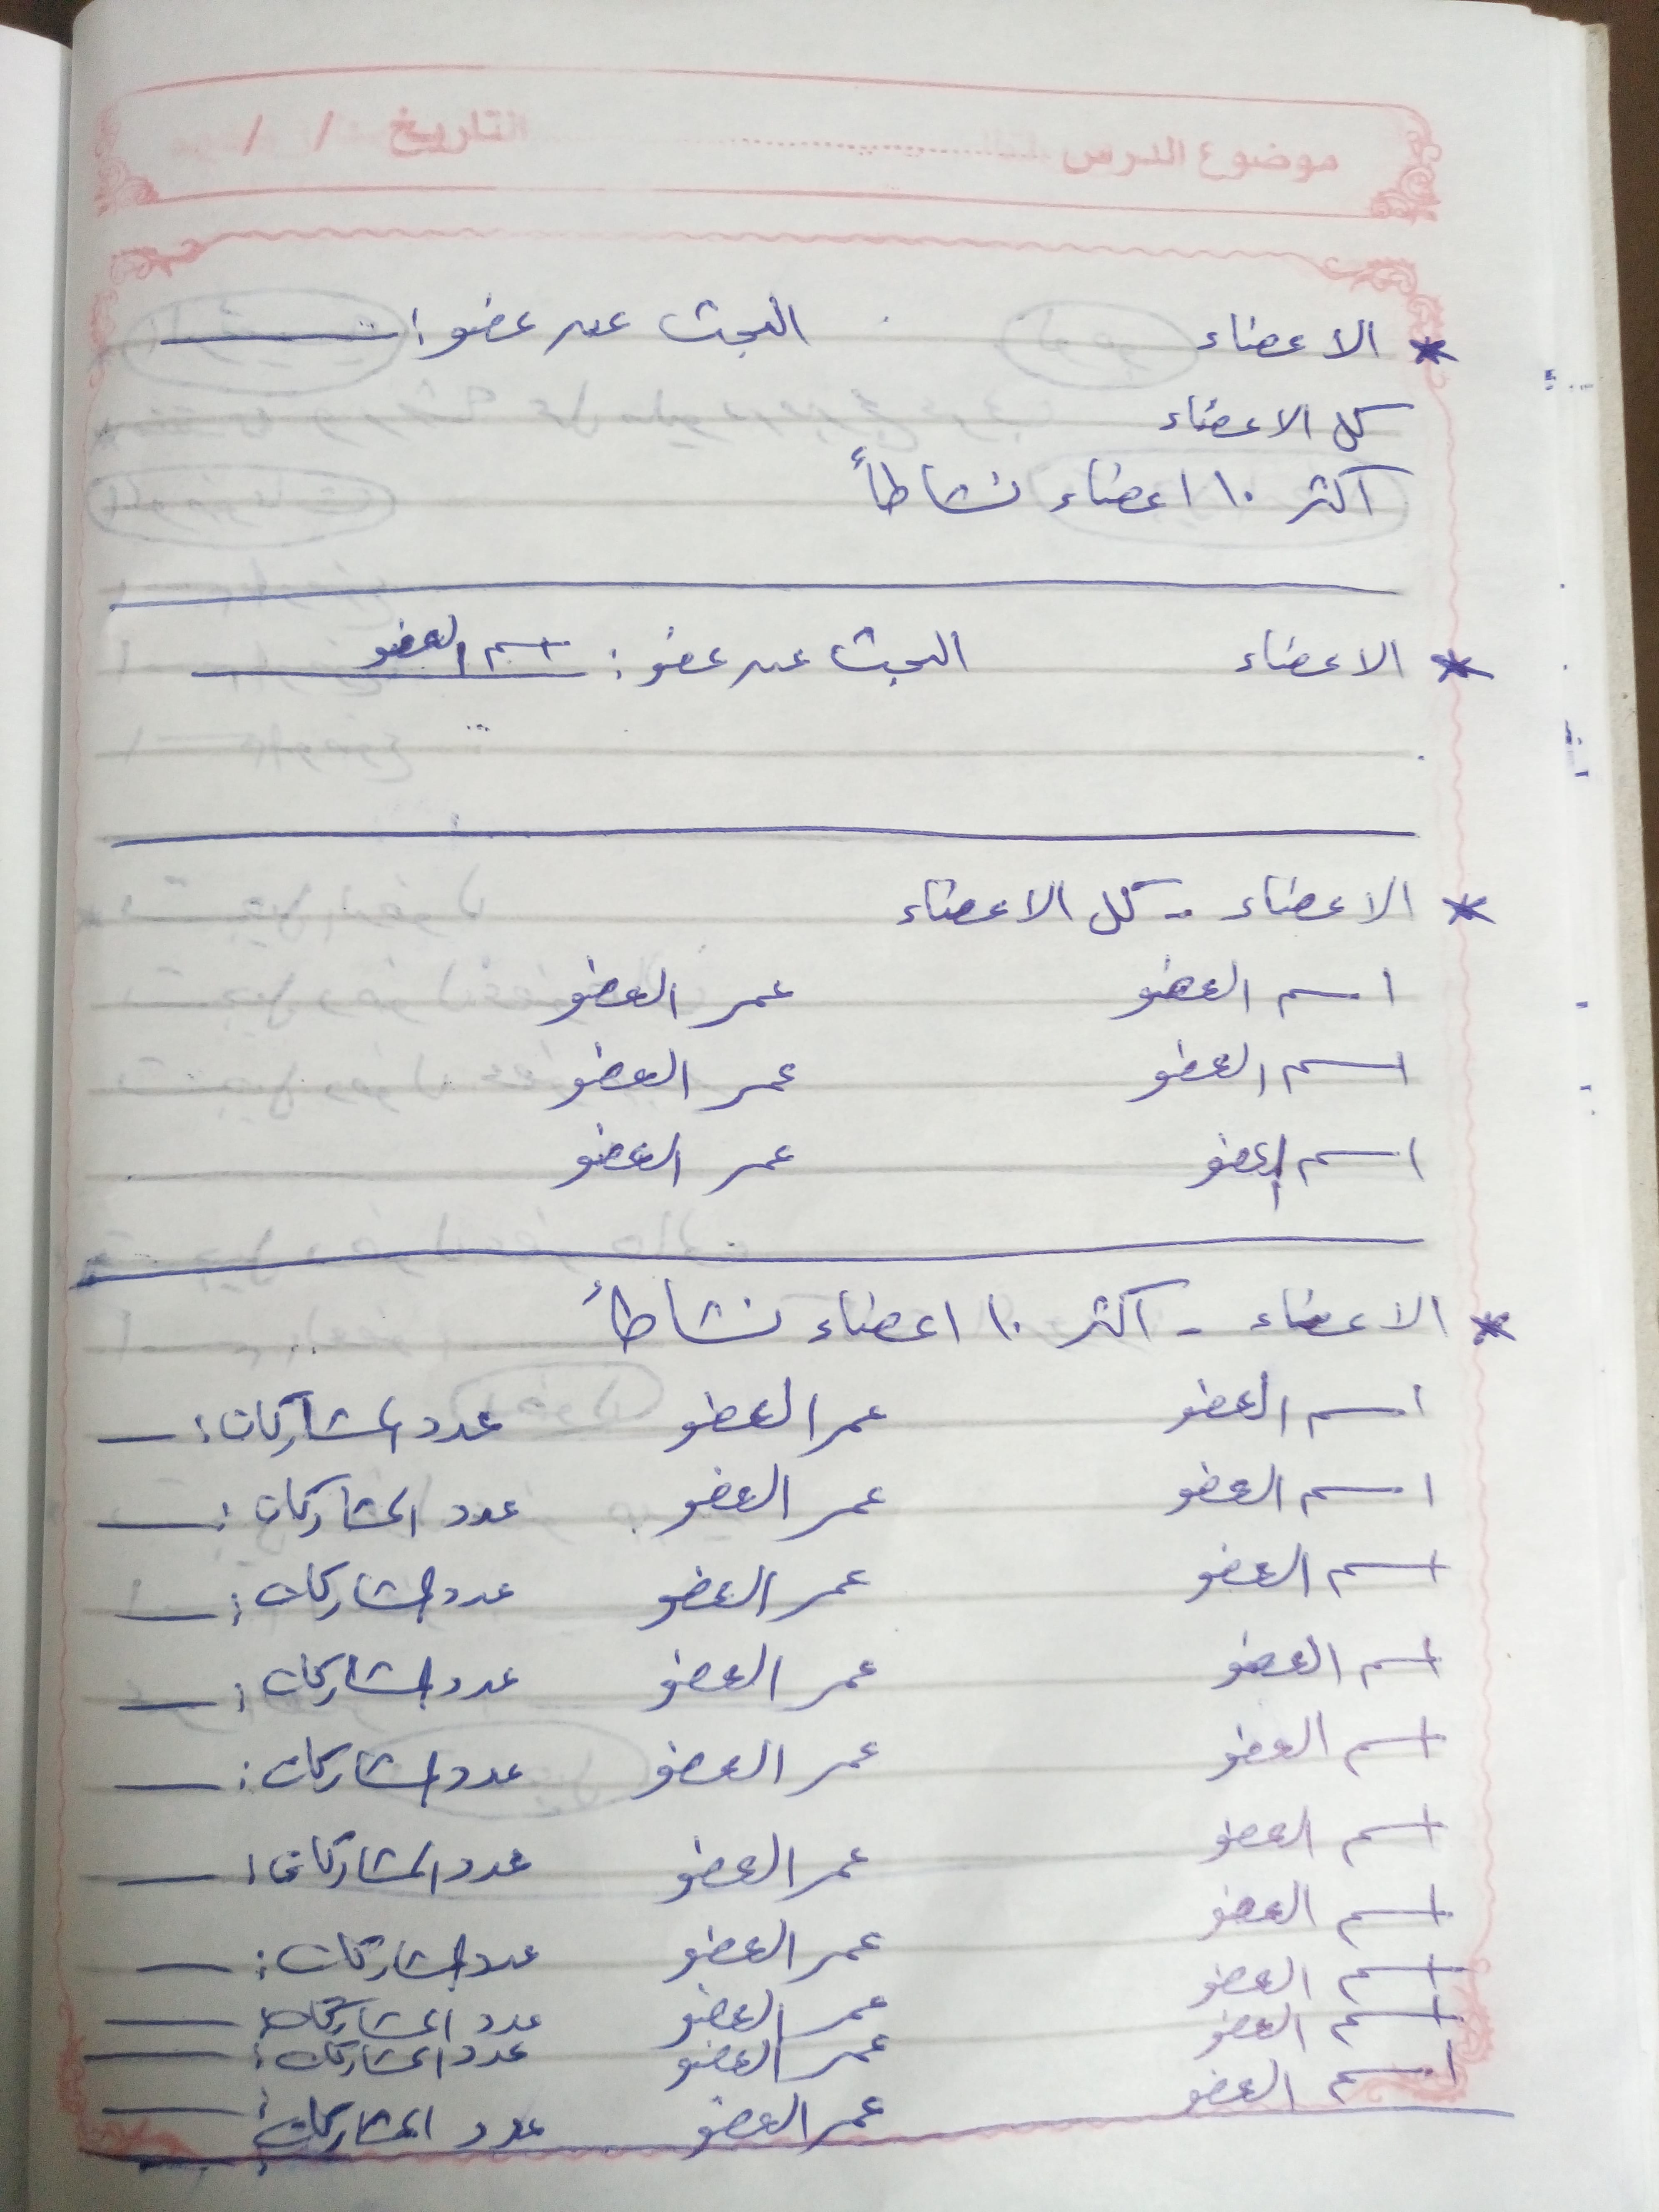 موضوع الدرس التاريخ / /
* الاعضاء البحث عن عضو :
كل الاعضاء
اكثر ١٠ اعضاء نشاطأ
* الاعضاء البحث عن عضو : اسم العضو
* الاعضاء - كل الاعضاء
اسم العضو عمر العضو
اسم العضو عمر العضو
اسم العضو عمر العضو
* الاعضاء - اكثر ١٠ اعضاء نشاطأ
اسم العضو عمر العضو عدد المشاركات :
اسم العضو عمر العضو عدد المشاركات :
اسم العضو عمر العضو عدد المشاركات :
اسم العضو عمر العضو عدد المشاركات :
اسم العضو عمر العضو عدد المشاركات :
اسم العضو عمر العضو عدد المشاركات :
اسم العضو عمر العضو عدد المشاركات :
اسم العضو عمر العضو عدد المشاركات :
اسم العضو عمر العضو عدد المشاركات :
اسم العضو عمر العضو عدد المشاركات :